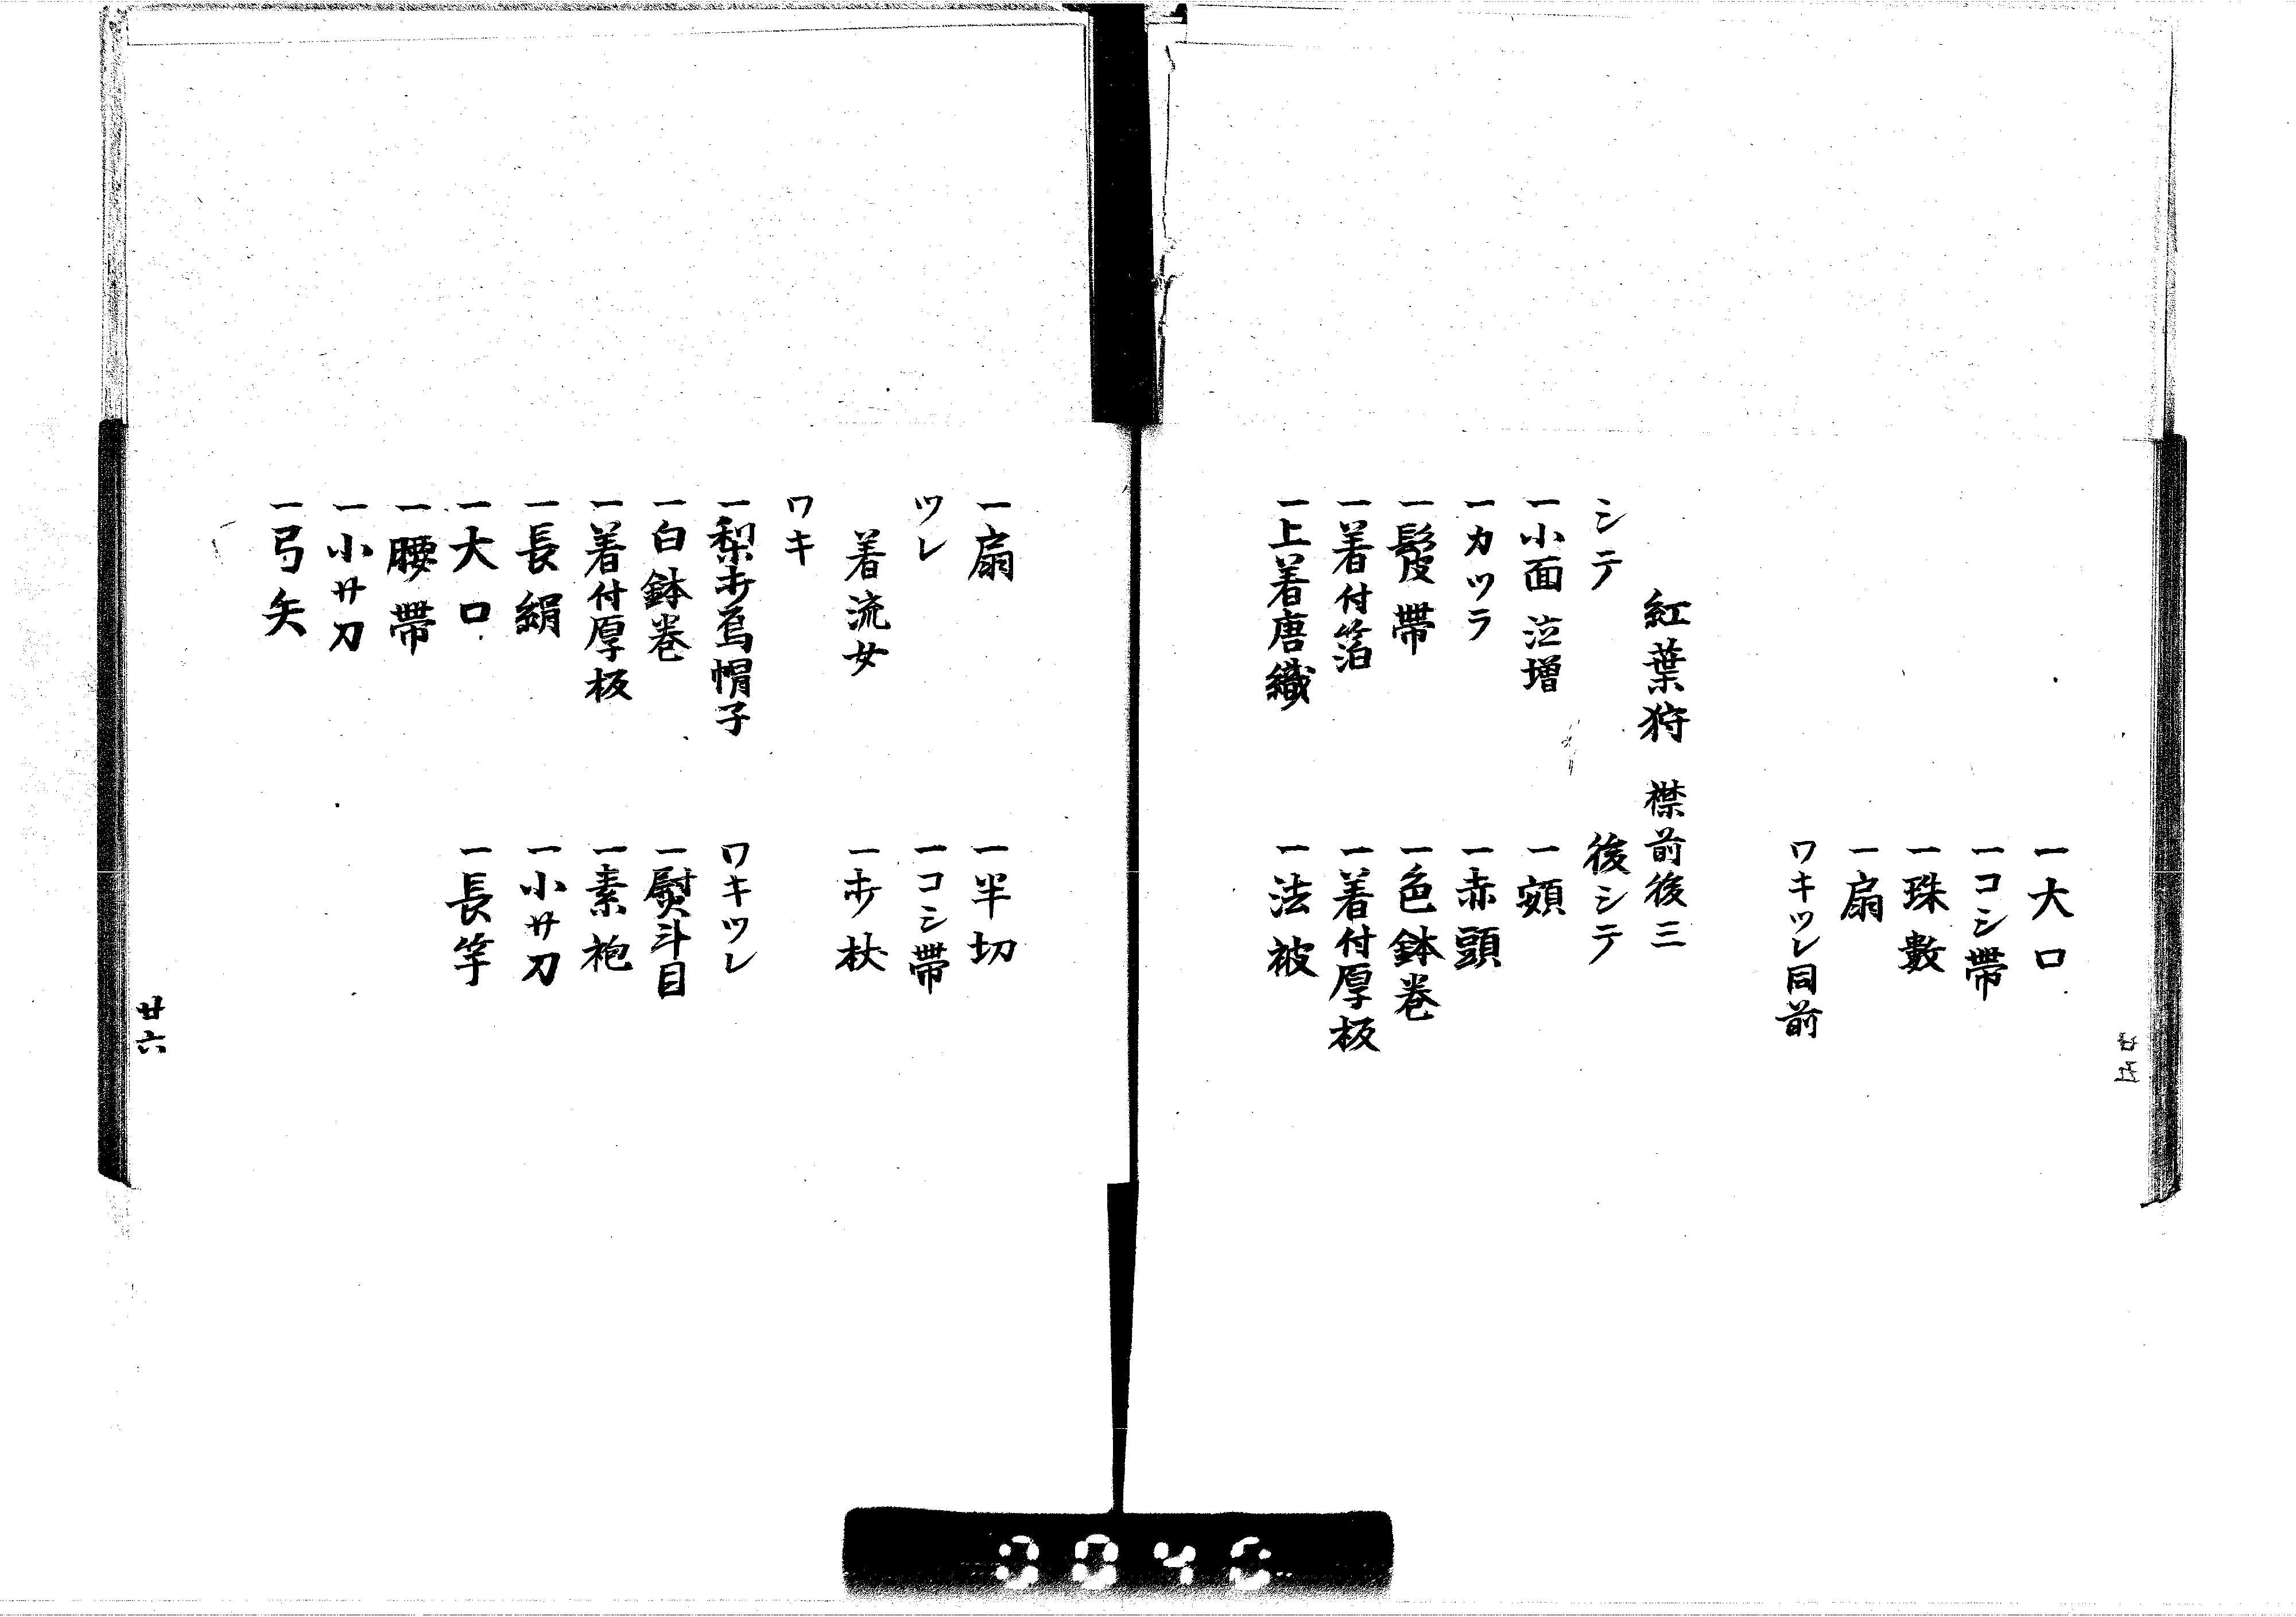 一大口
一コシ帶
一珠數
一扇
ワキツレ同前
紅葉狩 襟前後三
シテ
一小面 泣増
一カツラ
一鬘帶
一着付箔
一上着唐織
後シテ
一頞
一赤頭
一色鉢巻
一着付厚板
一法被
一扇
ツレ
着流女
ワキ
一梨打烏帽子
一白鉢巻
一着付厚板
一長絹
一大口
一腰帶
一小サ刀
一弓矢
一半切
一コシ帶
一打杖
ワキツレ
一熨斗目
一素袍
一小サ刀
一長竿
廿六